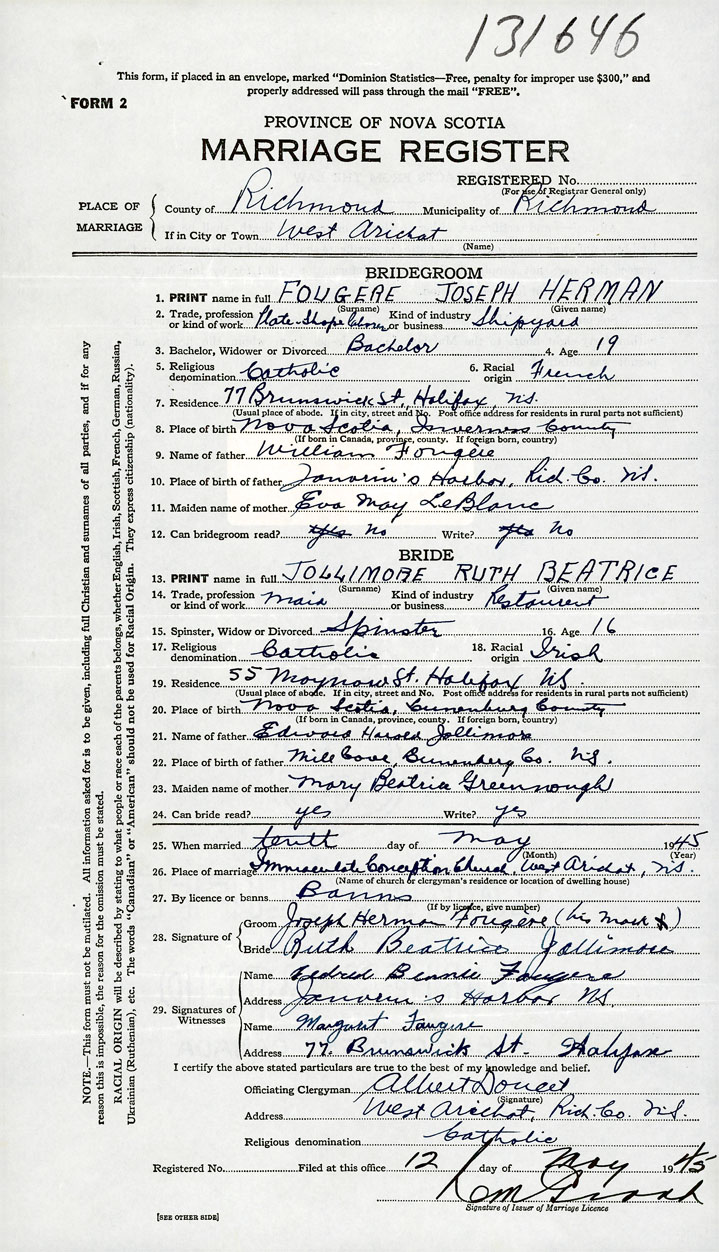 131646
This form, if placed in an envelope, marked “Dominion Statistics—Free, penalty for improper use $300,” and
properly addressed will pass through the mail “FREE”.
FORM 2
PROVINCE OF NOVA SCOTIA
MARRIAGE REGISTER
REGISTERED No.
(For use of Registrar General only)
PLACE OF MARRIAGE
County of Richmond Municipality of Richmond
If in City or Town West Arichat
(Name)
BRIDEGROOM
1. PRINT name in full FOUGERE JOSEPH HERMAN
(Surname) (Given name)
2. Trade, profession or kind of work Plate-Shope Kind of industry or business Shipyard
3. Bachelor, Widower or Divorced Bachelor 4. Age 19
5. Religious denomination Catholic 6. Racial origin French
7. Residence 77 Brunswick St, Halifax, N.S.
(Usual place of abode. If in city, street and No. Post office address for residents in rural parts not sufficient)
8. Place of birth Nova Scotia, Inverness County
(If born in Canada, province, county. If foreign born, country)
9. Name of father William Fougere
10. Place of birth of father Janvrin's Harbor, Rich. Co. N.S.
11. Maiden name of mother Eva May LeBlanc
12. Can bridegroom read? yes No Write? yes No
BRIDE
13. PRINT name in full JOLLIMORE RUTH BEATRICE
(Surname) (Given name)
14. Trade, profession or kind of work maid Kind of industry or business Restaurent
15. Spinster, Widow or Divorced Spinster 16. Age 16
17. Religious denomination Catholic 18. Racial origin Irish
19. Residence 55 St. Halifax N.S.
(Usual place of abode. If in city, street and No. Post office address for residents in rural parts not sufficient)
20. Place of birth Nova Scotia, Lunenburg County
(If born in Canada, province, county. If foreign born, country)
21. Name of father Edward Harold Jollimore
22. Place of birth of father Mill Cove, Lunenburg Co. N.S.
23. Maiden name of mother Mary Beatrice Greenough
24. Can bride read? yes Write? yes
25. When married tenth day of May 1945
(Month) (Year)
26. Place of marriage Immaculate Conception Church, West Arichat, N.S.
(Name of church or clergyman's residence or location of dwelling house)
27. By licence or banns Banns
(If by licence, give number)
28. Signature of
Groom Joseph Herman Fougere (his Mark X)
Bride Ruth Beatrice Jollimore
29. Signatures of Witnesses
Name Fougere
Address Janvrin's Harbor N.S.
Name Margaret Fougere
Address 77. Brunswick St. Halifax
I certify the above stated particulars are true to the best of my knowledge and belief.
Officiating Clergyman Albert Doucet
(Signature)
Address West Arichat, Rich. Co. N.S.
Religious denomination Catholic
Registered No. Filed at this office 12 day of May 1945
Signature of Issuer of Marriage Licence
[SEE OTHER SIDE]
NOTE.—This form must not be mutilated. All information asked for is to be given, including full Christian and surnames of all parties, and if for any
reason this is impossible, the reason for the omission must be stated.
RACIAL ORIGIN will be described by stating to what people or race each of the parents belongs, whether English, Irish, Scottish, French, German, Russian,
Ukrainian (Ruthenian), etc. The words “Canadian” or “American” should not be used for Racial Origin. They express citizenship (nationality).